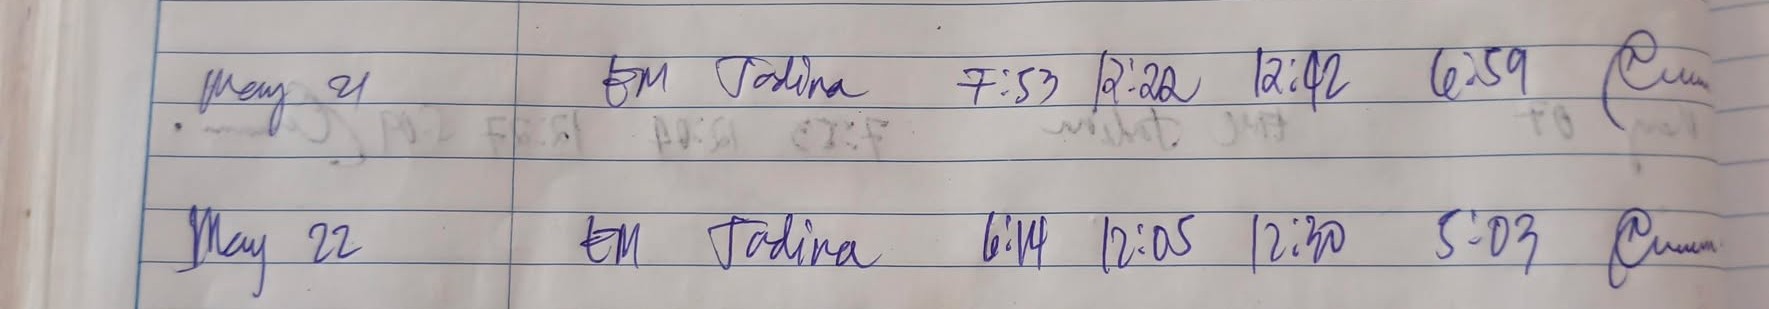 May 21 EM Jodina 7:53 12:22 12:42 6:59
May 22 EM Jodina 6:14 12:05 12:30 5:03